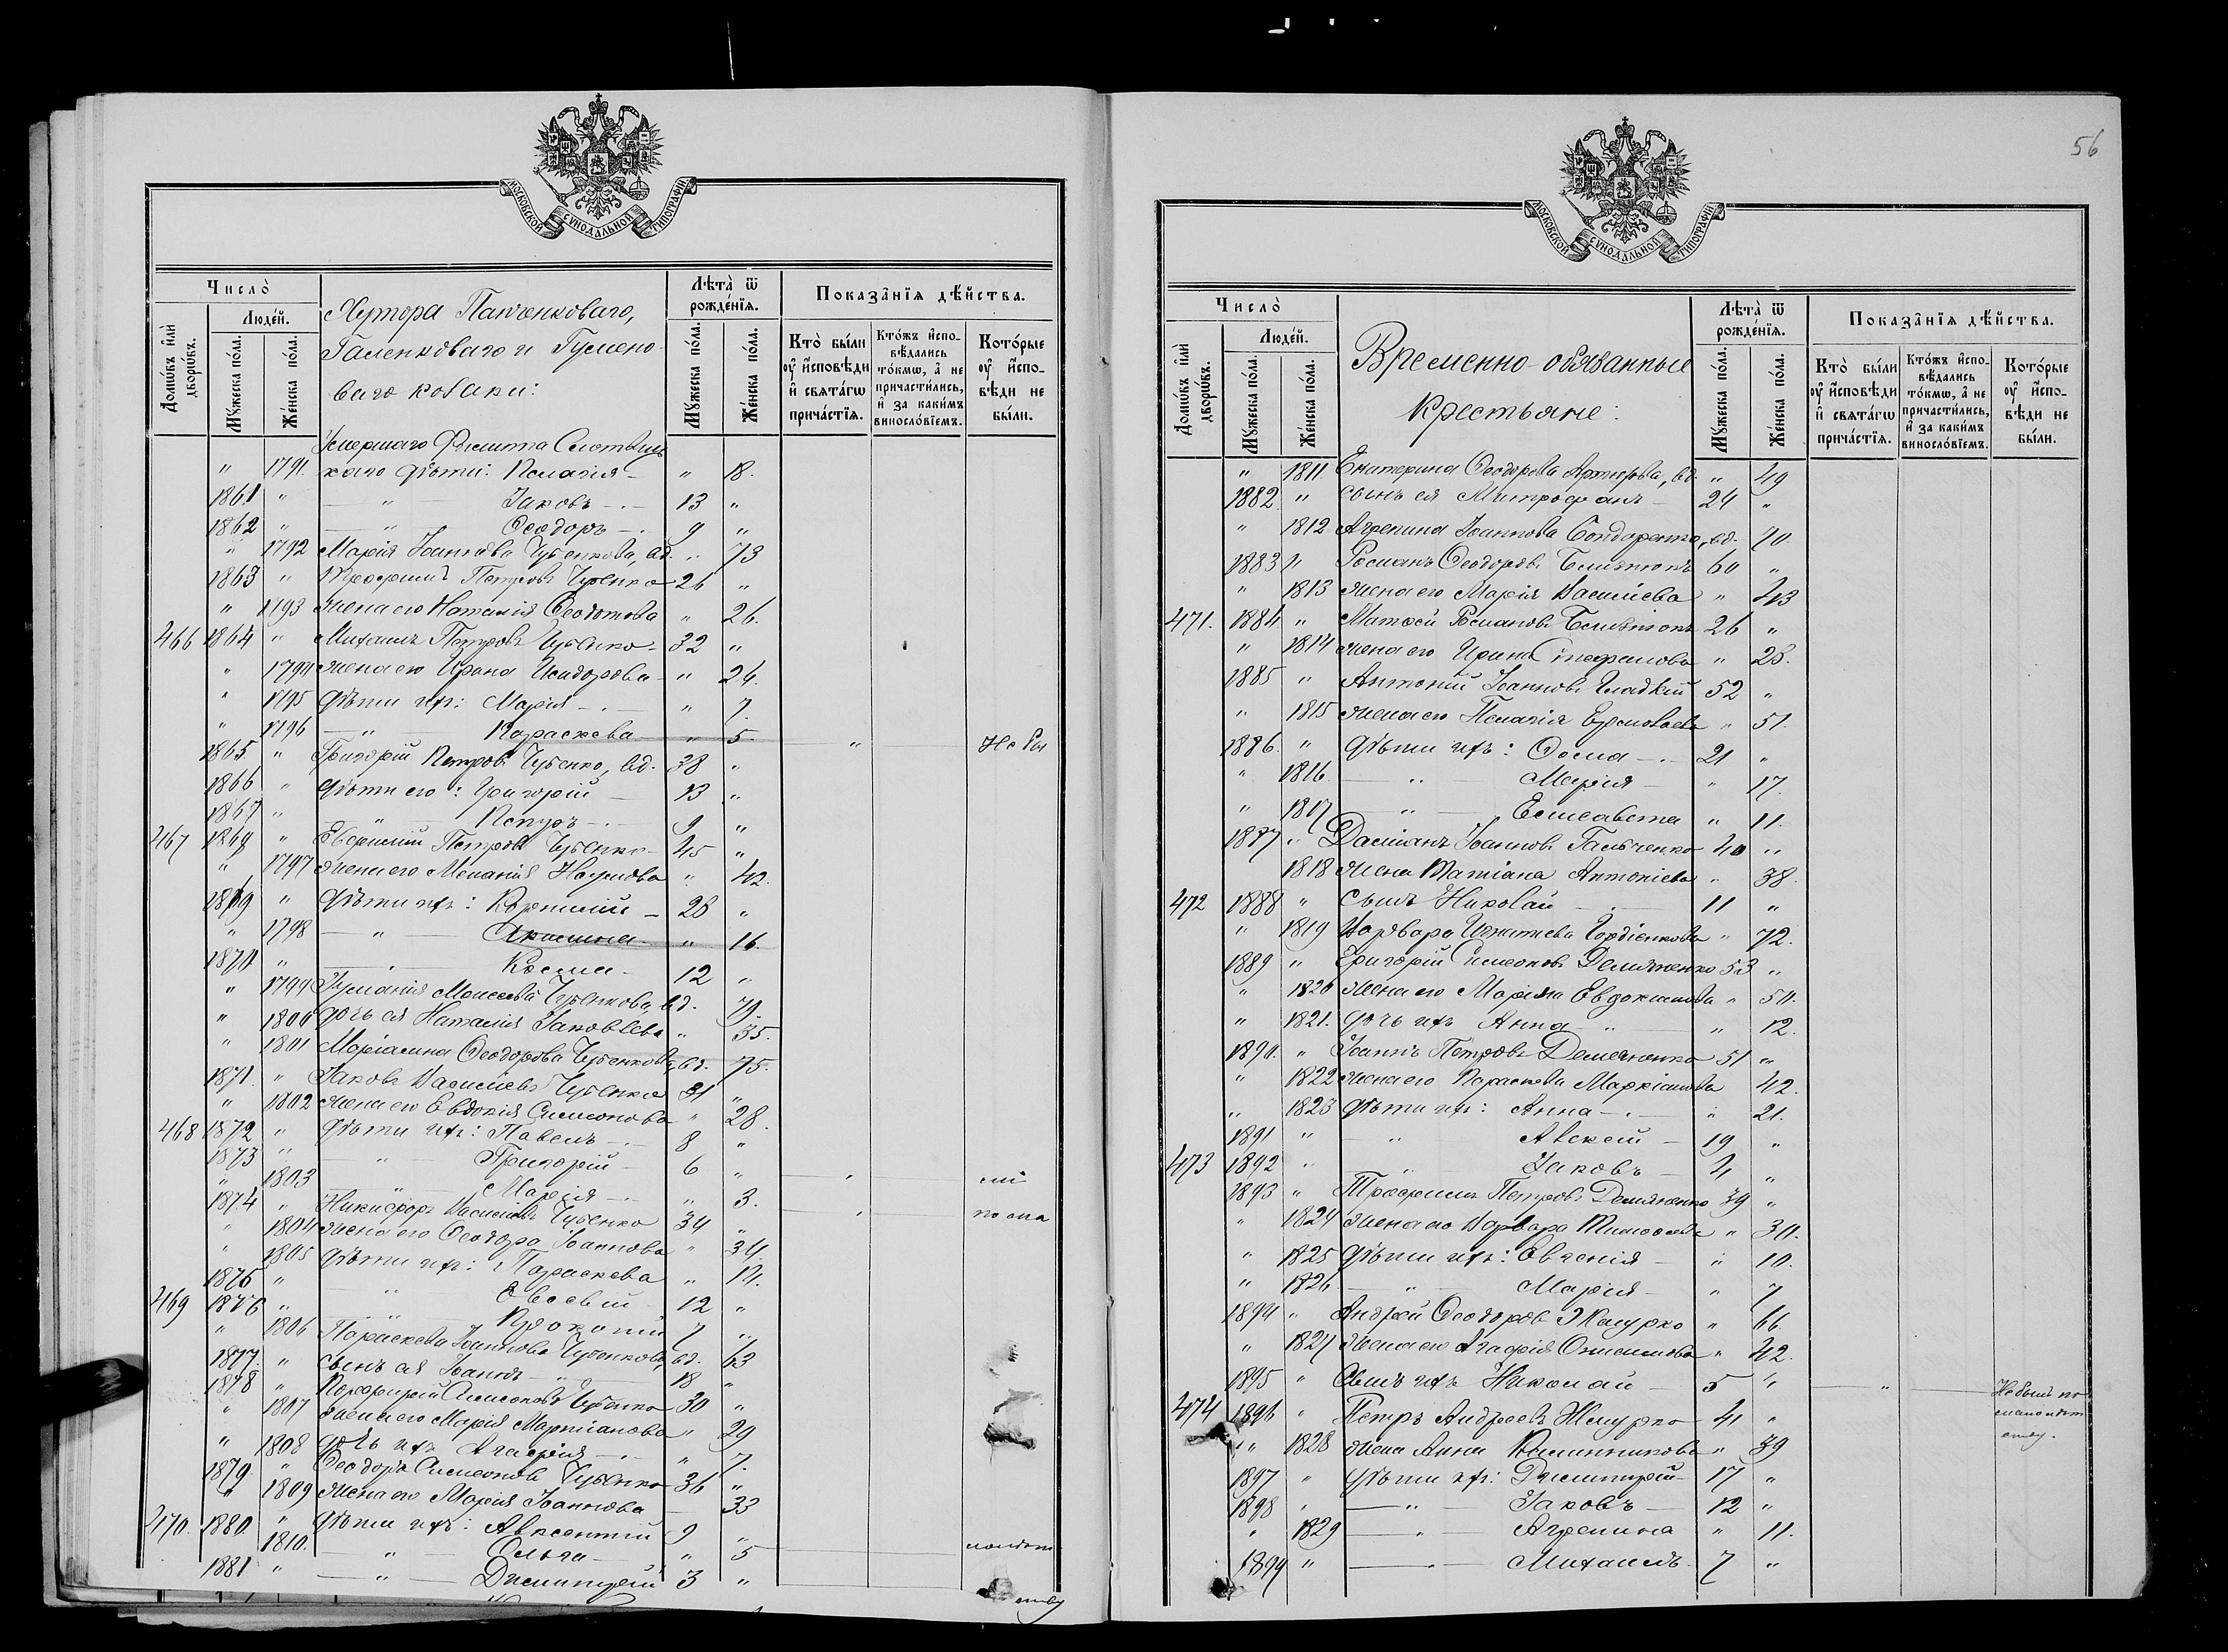 МОСКОВСКОЙ СѴНОДАЛЬНОЙ ТИПОГРАФІИ
Число̀
Люде́й.
Домѡ́въ и҆лѝ дворѡ́въ.
Мꙋ́жеска по́ла.
Же́нска по́ла.
Хутора Панченковаго,
Галенковаго и Гумено-
ваго козаки:
Лѣта̀ ѿ рожде́нїѧ.
Мꙋ́жеска по́ла.
Же́нска по́ла.
Показа̂нїѧ дѣ́йства.
Кто̀ бы́ли оу҆ и҆сповѣ́ди и҆ свѧта́гѡ прича́стїѧ.
Кто́жъ и҆спо-вѣ́дались то́кмѡ, а҆ не причасти́лись, и҆ за каки́мъ винсло́вїемъ.
Кото́рые оу҆ и҆спо-вѣ́ди не бы́ли.
Умершаго
" 1791. дѣти: Пелагія - " 18.
1861 " — " — Іаковъ — 13 "
1862 " — " — Ѳеодоръ — 9 "
" 1792 Марія Іоаннова Чубенкова, вд. " 73
1863 " Трофимъ Петровъ Чубенко 26 "
" 1793 жена его Наталія Ѳеодотова " 26.
466 1864 " Михаилъ Петровъ Чубенко - 32 "
" 1794 жена его Ирина Исидорова - " 24.
" 1795 дѣти ихъ: Марія — " 7.
" 1796 — " — Параскева " 5. "
1865. " Григорій Петровъ Чубенко, вд. 38 " Не бы
1866 " дѣти его: Григорій — 13 "
1867 " — " — Петръ — 9 "
467 1868 " Евфимій Петровъ Чубенко - 45 "
" 1797 жена его Меланія Наумова " 42.
1869 " дѣти ихъ: Корнилій — 28 "
" 1798 — " — Акилина " 16.
1870 " — " — Косма - 12 "
" 1799 Моисеева Чубенкова, вд. 79.
" 1800 дочь ея Наталія Іаковлева " 35.
" 1801 Маріамна Ѳеодорова Чубенкова, вд. 75.
1871. " Іаковъ Василіевъ Чубенко 31 "
" 1802 жена его Евдокія Симеонова " 28.
468 1872 " дѣти ихъ: Павелъ — 8 "
1873 " — " — Григорій — 6 "
" 1803 — " — Марія — " 3. "
1874 " Никифоръ Василіевъ Чубенко 34 "
" 1804 жена его Ѳеодора Іоаннова " 34.
" 1805 дѣти ихъ: Параскева " 14.
1875 " — " — Евсевій 12 "
469 1876 " — " — Прокопій 7 "
" 1806 Параскева Іоаннова Чубенкова, вд. 63
1877. " сынъ ея Іоаннъ 18 "
1878 " Порфирій Симеоновъ Чубенко 30 "
" 1807 жена его Марія Маркіанова " 29
" 1808 дочь ихъ Агафія — " 7.
1879 " Ѳеодоръ Симеоновъ Чубенко 36 "
" 1809 жена его Марія Іоаннова 33
470. 1880. " дѣти ихъ: Авксентій 9 "
1810. — " — Ольга — " 5
1881 " — " — Димитрій 3 "
56
МОСКОВСКОЙ СѴНОДАЛЬНОЙ ТИПОГРАФІИ
Число̀
Люде́й.
Домѡ́въ и҆лѝ дворѡ́въ.
Мꙋ́жеска по́ла.
Же́нска по́ла.
Временно-обязанные
крестьяне:
Лѣта̀ ѿ рожде́нїѧ.
Мꙋ́жеска по́ла.
Же́нска по́ла.
Показа̂нїѧ дѣ́йства.
Кто̀ бы́ли оу҆ и҆сповѣ́ди и҆ свѧта́гѡ прича́стїѧ.
Кто́жъ и҆спо-вѣ́дались то́кмѡ, а҆ не причасти́лись, и҆ за каки́мъ винсло́вїемъ.
Кото́рые оу҆ и҆спо-вѣ́ди не бы́ли.
" 1811. Екатерина Ѳеодорова вд. " 49
1882. " сынъ ея Митрофанъ — 24 "
" 1812 Агрепина Іоаннова Бондаренко, вд. 70.
1883 " Романъ Ѳеодоровъ 60 "
" 1813 жена его Марія Василіева " 43
471. 1884 " Матѳей Романовъ 26 "
" 1814 жена его Ирина Стефанова " 28.
1885 " Антоній Іоанновъ Гладкій 52 "
" 1815 жена его Пелагія " 51.
1886. " дѣти ихъ: Ѳома — 21 "
" 1816. — " — Марія — " 17.
" 1817 — " — Елисавета " 11.
1887 " Даміанъ Іоанновъ Гальченко 40 "
1818 жена Татіана Антоніева " 38.
472 1888 " сынъ Николай — 11 "
" 1819 Варвара Игнатіева Гордіенкова " 72.
1889 " Григорій Симеоновъ Демяненко 53 "
" 1820 жена его Марина Евдокимова " 50.
" 1821. дочь ихъ Анна — " — " 12.
1890. " Іоаннъ Петровъ Демяненко 51 "
" 1822 жена его Параскева Маркіанова 42.
" 1823 дѣти ихъ: Анна — " 21.
1891 " — " — Алексѣй — 19 "
473 1892 " " Іаковъ — 4 "
1893 " Трофимъ Петровъ Демяненко 39 "
" 1824 жена его Варвара Тимоѳеева " 30.
" 1825 дѣти ихъ: Евгенія — " 10.
" 1826 — " — Марія — " 7
1894 " Андрей Ѳеодоровъ Жмурко " 66.
" 1827 жена его Агафія " 42.
1895 " Сынъ ихъ Николай — 5 " "
474 1896 " Петръ Андреевъ Жмурко — 41 " Не были по
" 1828 жена Анна Калинникова " 39
1897 " дѣти ихъ: Димитрій — 17 "
1898 " — " — Іаковъ — 12 "
" 1829 — " — Агрепина " 11.
1899 " — " — Михаилъ 7 "